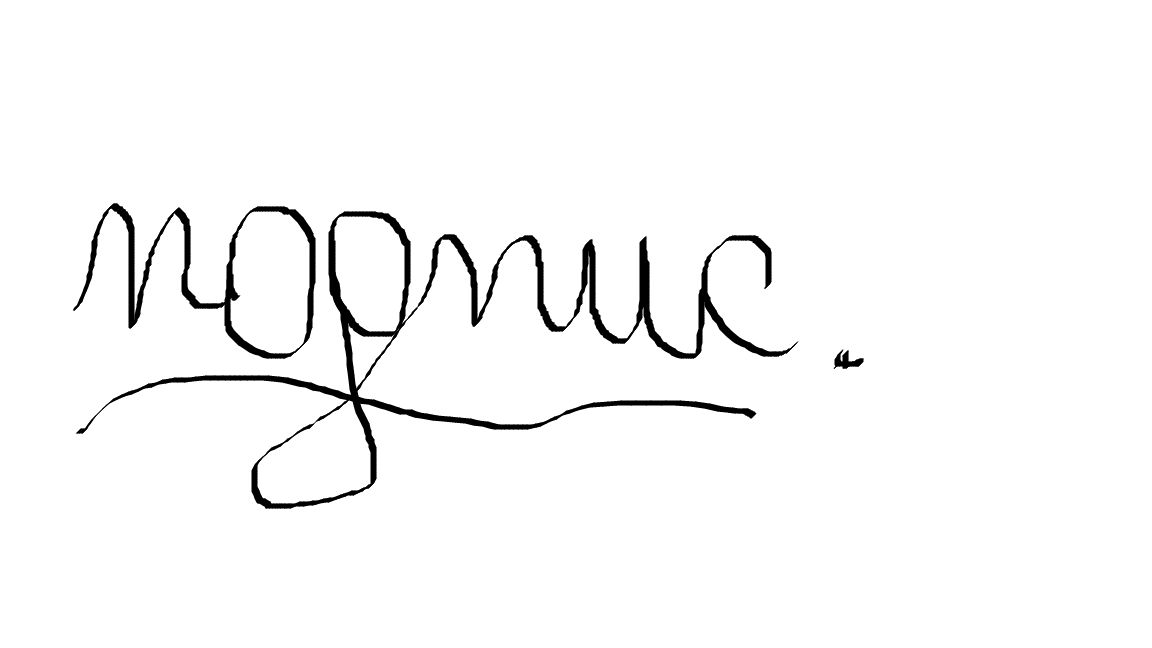 подпис.